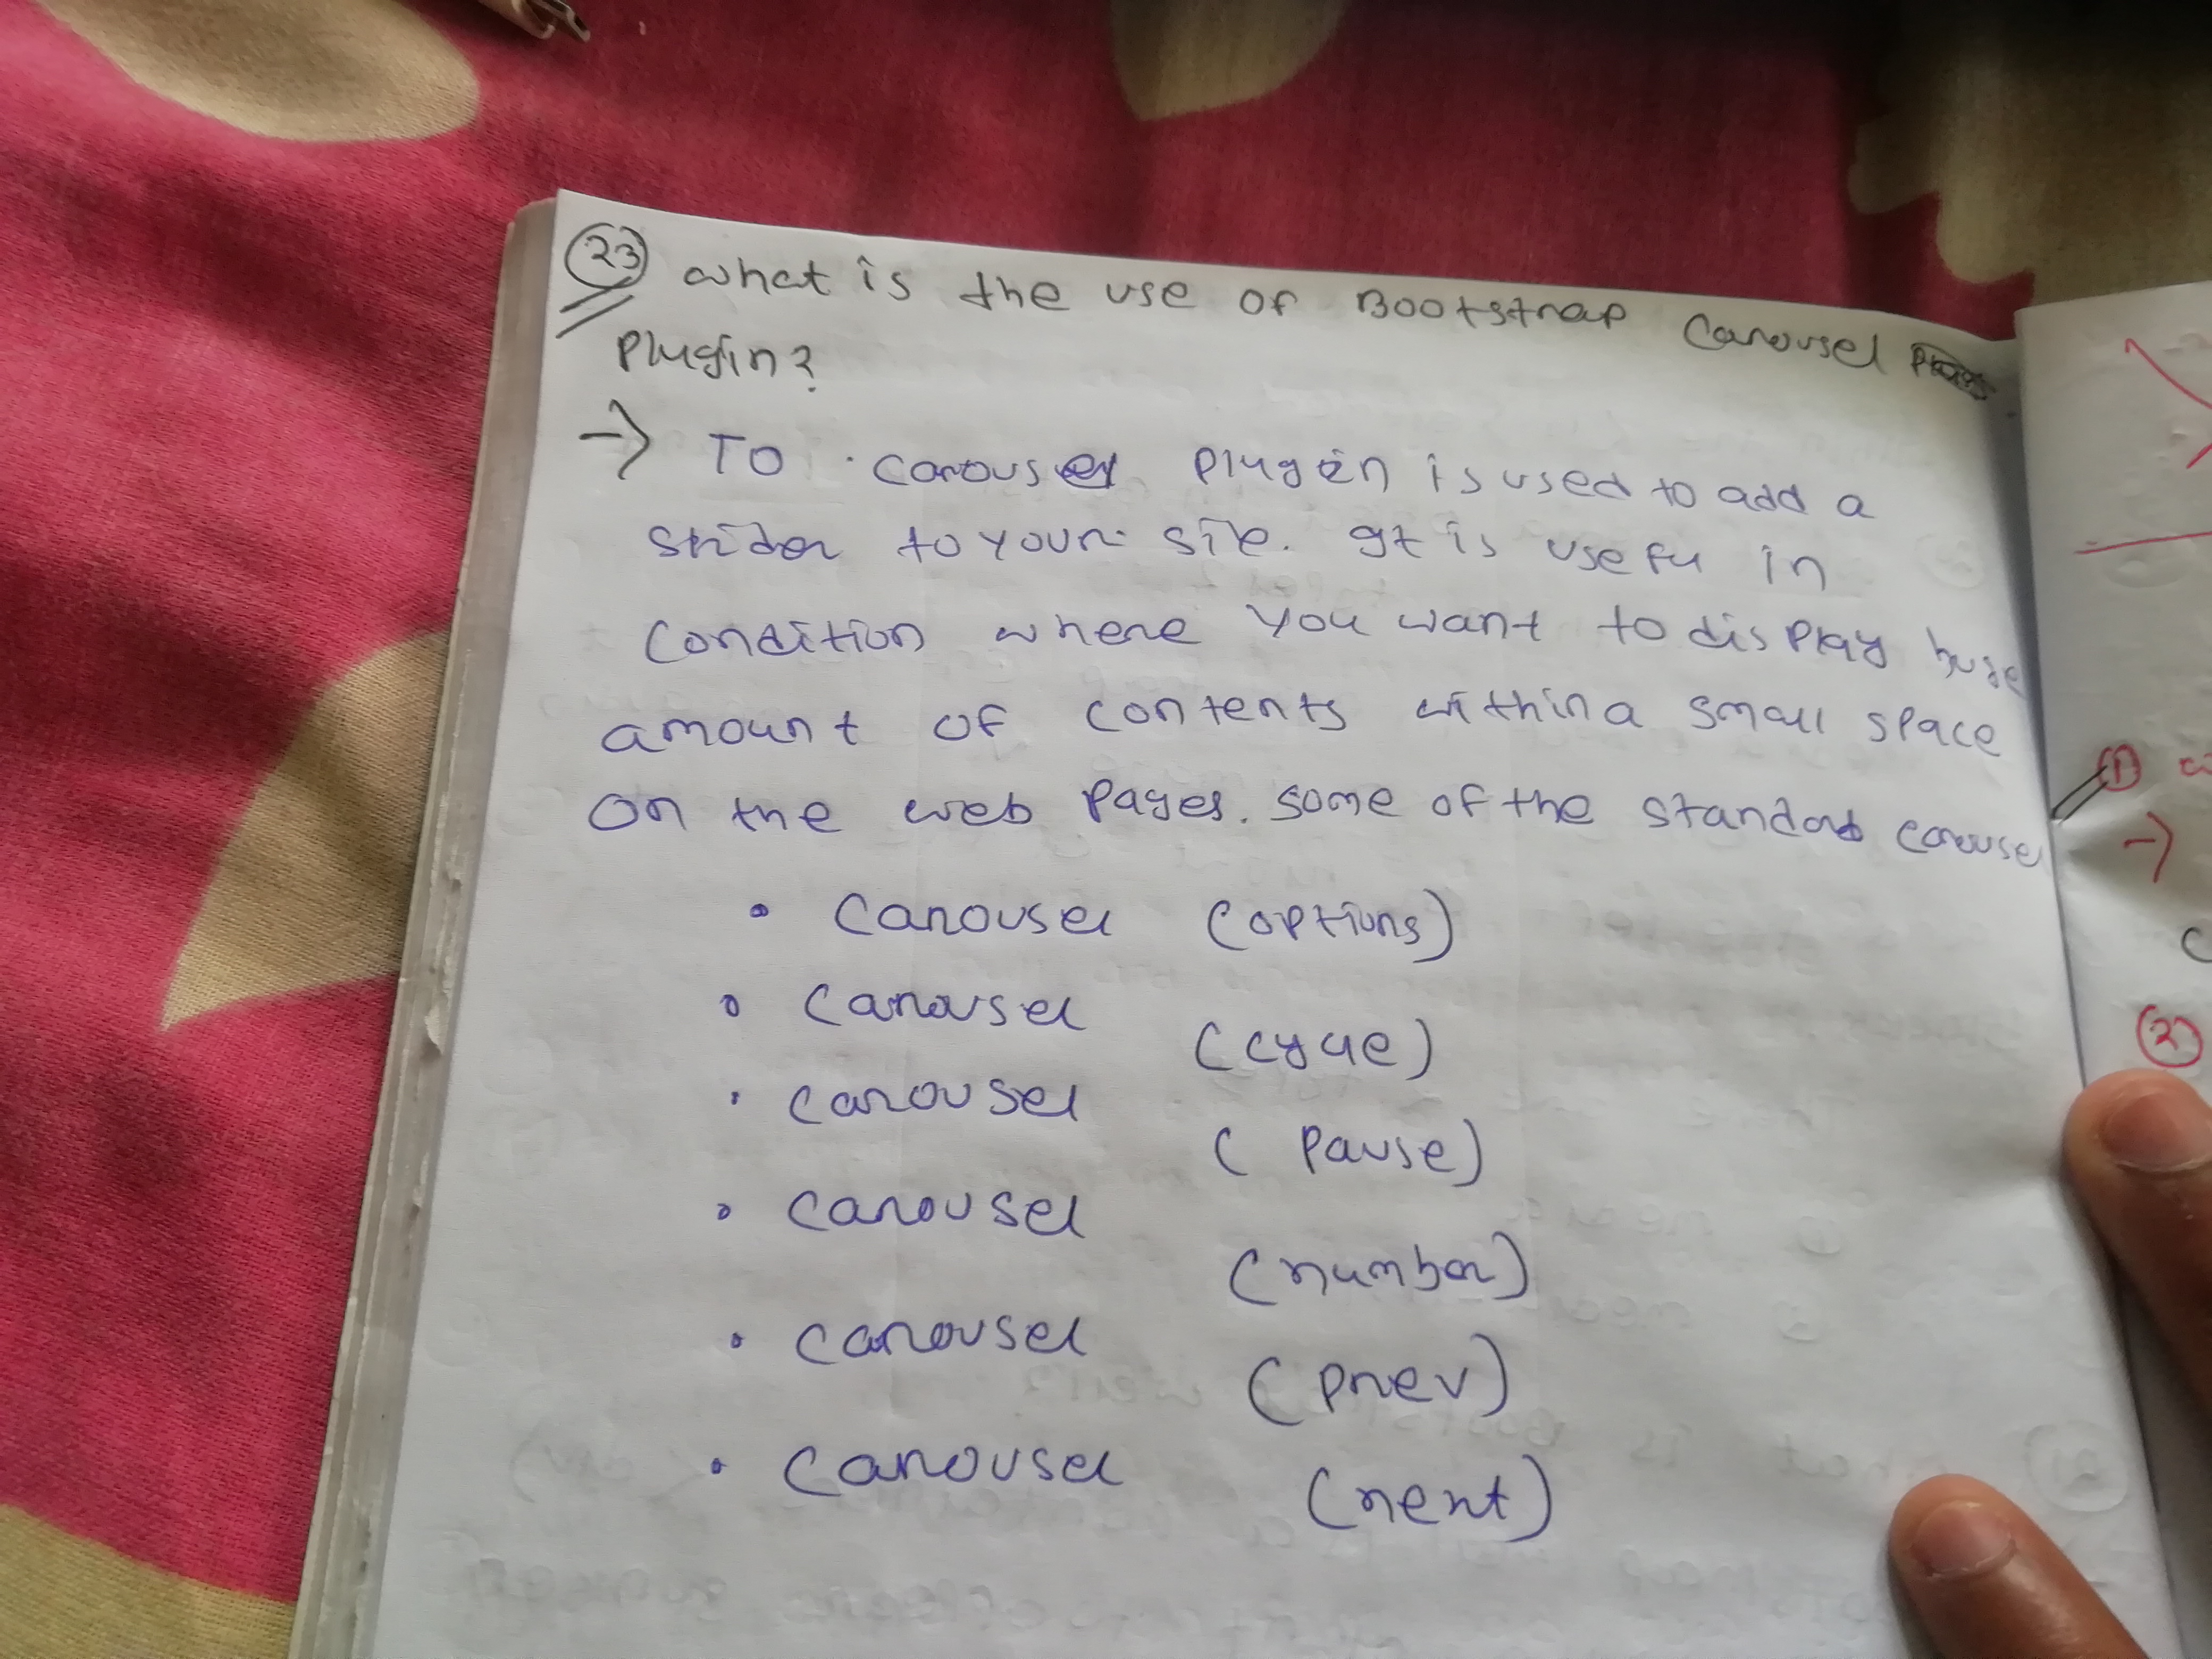 23 What is the use of Bootstrap Carousel
Plugin?
→ To carousel Plugin is used to add a
slider to your site. It is usefu in
Condition where you want to display huge
amount of contents within a small space
on the web Pages. some of the standard carousel
• Carousel (options)
• Carousel (cycle)
• Carousel (Pause)
• Carousel (number)
• Carousel (prev)
• Carousel (next)
1
→
2